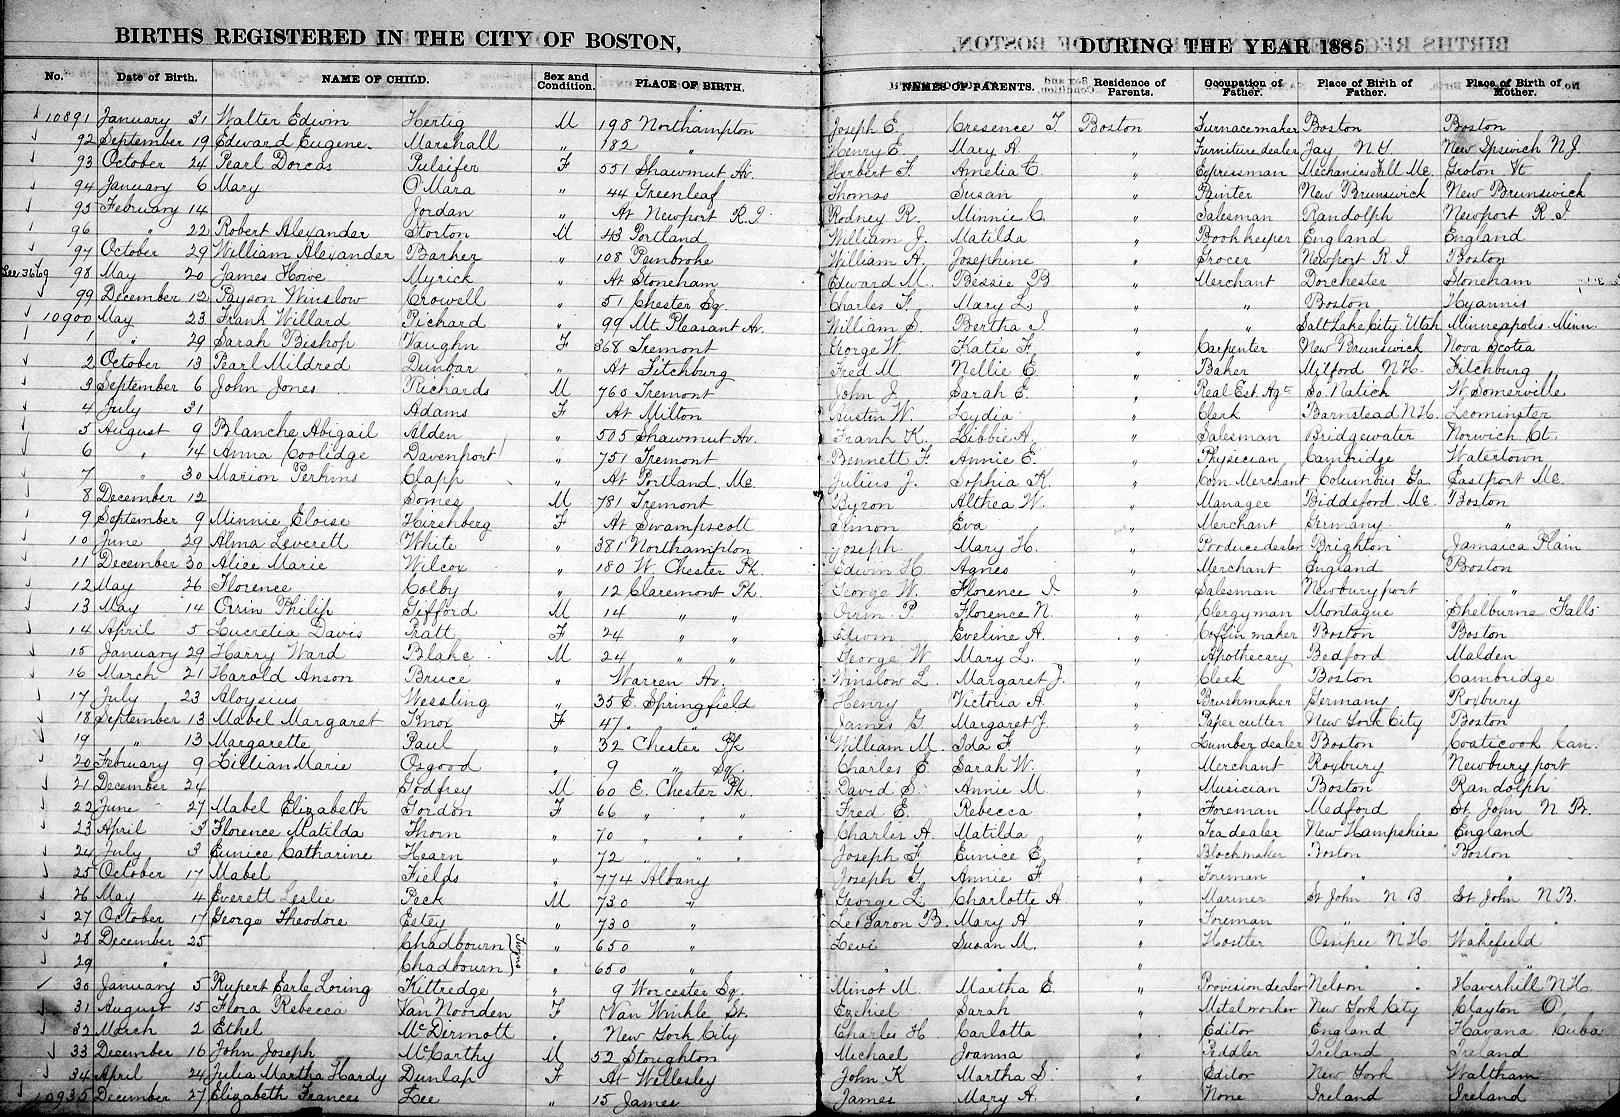 BIRTHS REGISTERED IN THE CITY OF BOSTON, DURING THE YEAR 1885
No. Date of Birth. NAME OF CHILD. Sex and Condition. PLACE OF BIRTH. NAMES OF PARENTS. Residence of Parents. Occupation of Father. Place of Birth of Father. Place of Birth of Mother.
10891 January 31 Walter Edwin Hertig M 198 Northampton Joseph E. Cresence T. Boston Furnacemaker Boston Boston
92 September 19 Edward Eugene. Marshall " 182 " Henry E. Mary A. " Furniture dealer Jay N Y New Ipswich N J.
93 October 24 Pearl Dorcas Pulsifer F 551 Shawmut Av. Herbert F. Amelia C. " Expressman Mechanics Fall Me. Groton Vt
94 January 6 Mary O'Mara " 44 Greenleaf Thomas Susan " Painter New Brunswick New Brunswick
95 February 14 Jordan " At Newport R. I. Rodney R. Minnie C. " Salesman Randolph Newport R I
96 " 22 Robert Alexander Storton M 43 Portland William J. Matilda " Bookkeeper England England
97 October 29 William Alexander Barker " 108 Pembroke William A. Josephine " Grocer Newport R I Boston
See 3669 98 May 20 James Howe Myrick " At Stoneham Edward M. Bessie B " Merchant Dorchester Stoneham
99 December 12 Payson Winslow Crowell " 51 Chester Sq. Charles F. Mary L. " " Boston Hyannis
10900 May 23 Frank Willard Pichard " 99 Mt. Pleasant Av. William S. Bertha I. " " Salt Lake City Utah Minneapolis Minn.
1 " 29 Sarah Bishop Vaughn F 368 Tremont George W. Katie F. " Carpenter New Brunswick Nova Scotia
2 October 13 Pearl Mildred Dunbar " At Fitchburg Fred M Nellie E. " Baker Milford N.H. Fitchburg
3 September 6 John Jones Richards M 760 Tremont John J. Sarah E. " Real Est. Agt. So. Natick W. Somerville
4 July 31 Adams F At Milton Austin W. Lydia " Clerk Barnstead N H. Leominster
5 August 9 Blanche Abigail Alden " 505 Shawmut Av. Frank K. Libbie A. " Salesman Bridgewater Norwich Ct.
6 " 14 Anna Coolidge Davenport " 751 Tremont Bennett F. Annie E. " Physician Cambridge Watertown
7 " 30 Marion Perkins Clapp " At Portland Me. Julius J. Sophia K. " Com. Merchant Columbus Ga Eastport Me.
8 December 12 Somes M 781 Tremont Byron Althea W. " Manager Biddeford Me. Boston
9 September 9 Minnie Eloise Hirshberg F At Swampscott Simon Eva " Merchant Germany "
10 June 29 Alma Leverett White " 381 Northampton Joseph Mary H. " Produce dealer Brighton Jamaica Plain
11 December 30 Alice Marie Wilcox " 180 W. Chester Pk. Edwin H. Agnes " Merchant England Boston
12 May 26 Florence Colby " 12 Claremont Pk. George W. Florence I. " Salesman Newburyport "
13 May 14 Orrin Philip Gifford M 14 " " Orrin P. Florence N. " Clergyman Montague Shelburne Falls
14 April 5 Lucretia Davis Pratt F 24 " " Edwin Eveline A. " Coffin maker Boston Boston
15 January 29 Harry Ward Blake M 24 " " George W. Mary L. " Apothecary Bedford Malden
16 March 21 Harold Anson Bruce " Warren Av. Winslow L. Margaret J. " Clerk Boston Cambridge
17 July 23 Aloysius Wessling " 35 E. Springfield Henry Victoria A. " Brushmaker Germany Roxbury
18 September 13 Mabel Margaret Knox F 47 " " James G. Margaret J. " Paper cutter New York City Boston
19 " 13 Margarette Paul " 32 Chester Pk William M. Ida F. " Lumber dealer Boston Coaticook Can.
20 February 9 Lillian Marie Osgood " 9 " Sq. Charles E. Sarah W. " Merchant Roxbury Newburyport
21 December 24 Godfrey M 60 E. Chester Pk. David S. Annie M " Musician Boston Randolph
22 June 27 Mabel Elizabeth Gordon F 66 " " " Fred E. Rebecca " Foreman Medford St. John N. B.
23 April 3 Florence Matilda Thorn " 70 " " " Charles A. Matilda " Tea dealer New Hampshire England
24 July 3 Eunice Catharine Hearn " 72 " " " Joseph F. Eunice E. " Blockmaker Boston Boston
25 October 17 Mabel Fields " 774 Albany Joseph T. Annie F " Foreman " "
26 May 4 Everett Leslie Peck M 730 " George L. Charlotte A. " Mariner St John N B St. John N B.
27 October 17 George Theodore Estey " 730 " Le Baron B. Mary A " Foreman " " " "
28 December 25 Chadbourn Twins " 650 " Levi Susan M. " Hostler Ossipee N H. Wakefield "
29 " Chadbourn " 650 " " " " " " " "
30 January 5 Rupert Earle Loring Kittredge " 9 Worcester Sq. Minot M. Martha E. " Provision dealer Nelson " Haverhill N H.
31 August 15 Flora Rebecca Van Noorden F Van Winkle St. Ezekiel Sarah " Metal worker New York City Clayton O.
32 March 2 Ethel McDermott " New York City Charles H. Carlotta " Editor England Havana Cuba
33 December 16 John Joseph McCarthy M 52 Stoughton Michael Joanna " Peddler Ireland Ireland
34 April 24 Julia Martha Hardy Dunlap F At Wellesley John K Martha S. " Editor New York Waltham
10935 December 27 Elizabeth Frances Lee " 15 James James Mary A. " None Ireland Ireland